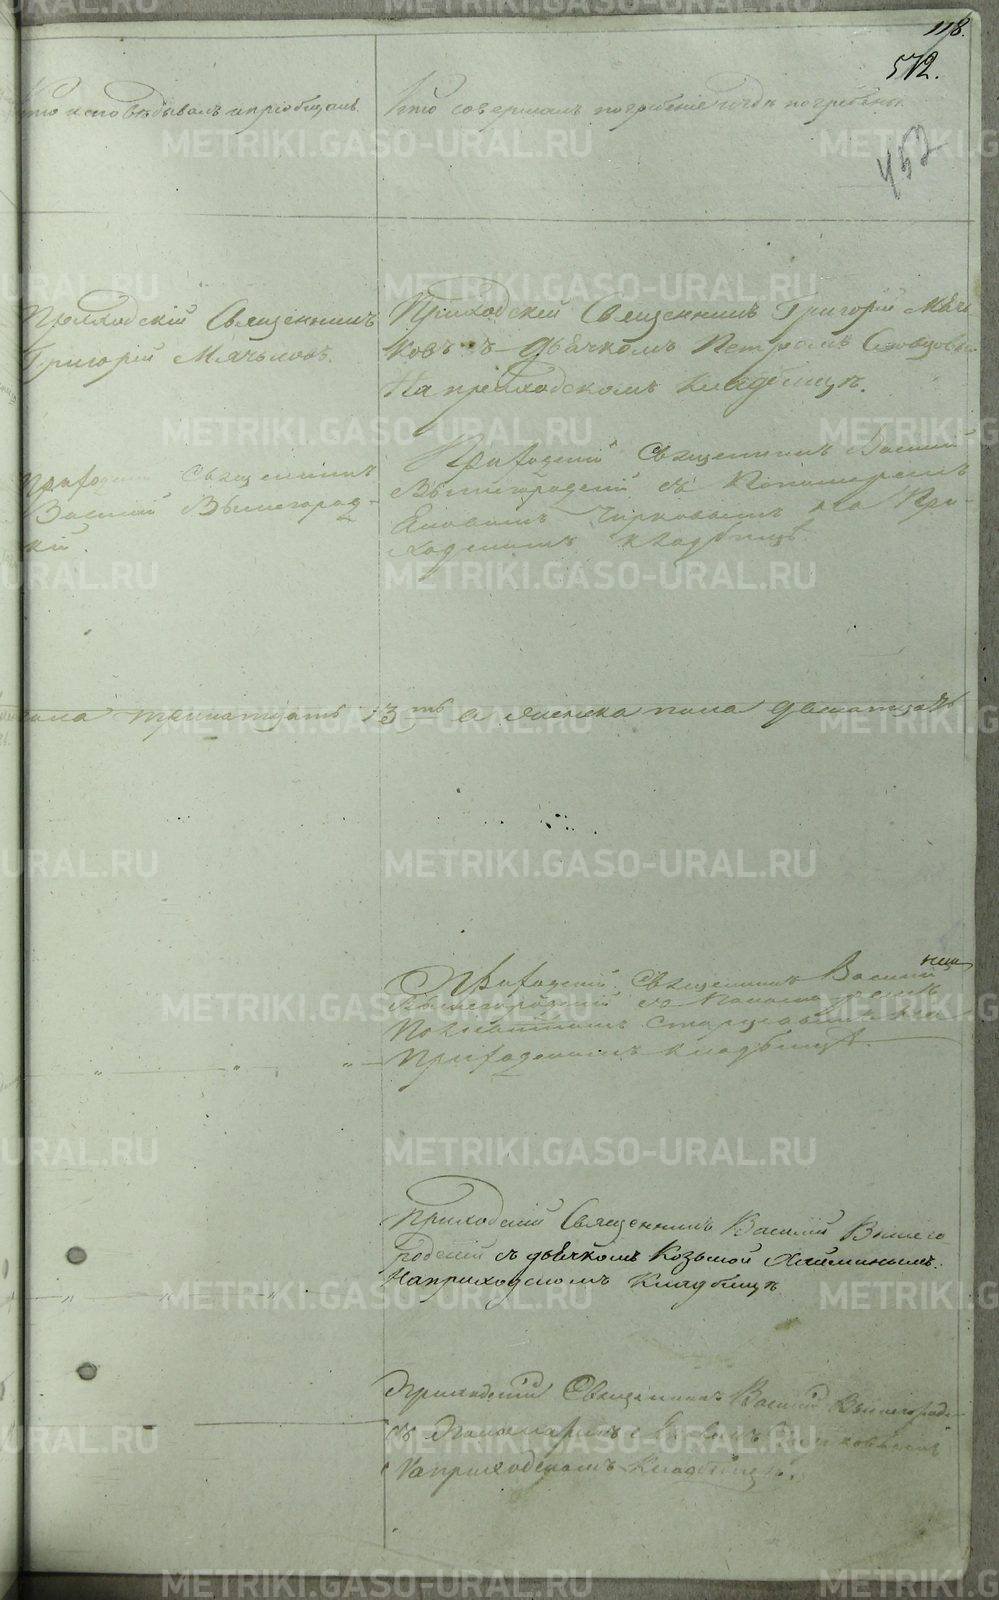 118.
572.
452
Кто исповѣдывалъ и пріобщалъ
Кто совершалъ погребеніе и гдѣ погребены
Приходскій Священникъ
Григорій Мячьковъ.
Приходскій Священникъ Григорій Мячь
ковъ съ дьячкомъ Петромъ Словцовымъ
На приходскомъ кладбищѣ.
Приходскій Священникъ
Василій Вышегород-
кій.
Приходскій Священникъ Василій
Вышегородскій съ Пономаремъ
на При-
ходскомъ кладбищѣ.
пола тринатцать 13ть а женска пола дватцать
Приходскій Священникъ Василій
Вышегородскій съ Пономаремъ
Старцовымъ на
Приходскомъ кладбищѣ.
Приходскій Священникъ Василій Вышего
родскій съ дьячкомъ Козьмой
На приходскомъ Кладбищѣ
Приходскій Священникъ Василій Вышегород-
съ Пономаремъ
На приходскомъ Кладбищѣ.
METRIKI.GASO-URAL.RU